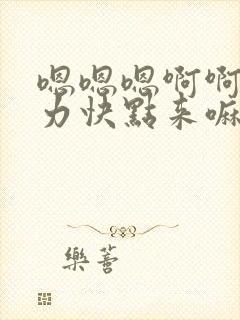 嗯嗯嗯啊啊
力快點来嘛
樂善